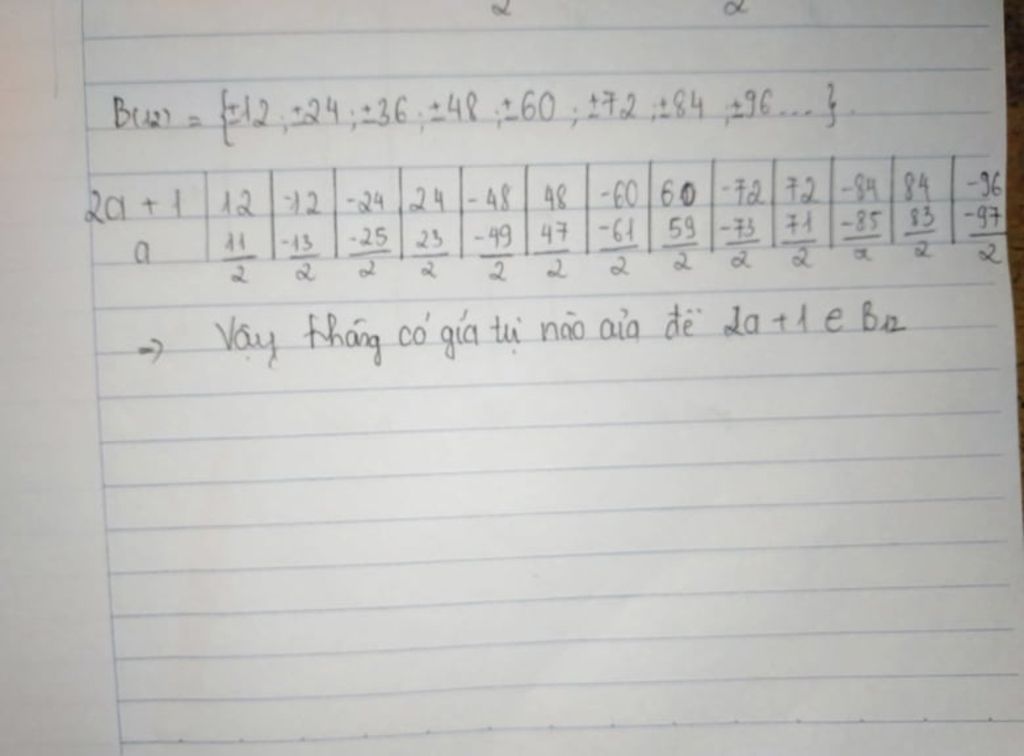 2 2
B(12) = {±12 ; ±24 ; ±36 ; ±48 ; ±60 ; ±72 ; ±84 ; ±96 ... }.
2a + 1 | 12 | -12 | -24 | 24 | -48 | 48 | -60 | 60 | -72 | 72 | -84 | 84 | -96
a | 11/2 | -13/2 | -25/2 | 23/2 | -49/2 | 47/2 | -61/2 | 59/2 | -73/2 | 71/2 | -85/2 | 83/2 | -97/2
=> Vậy không có giá trị nào của để 2a + 1 e B12